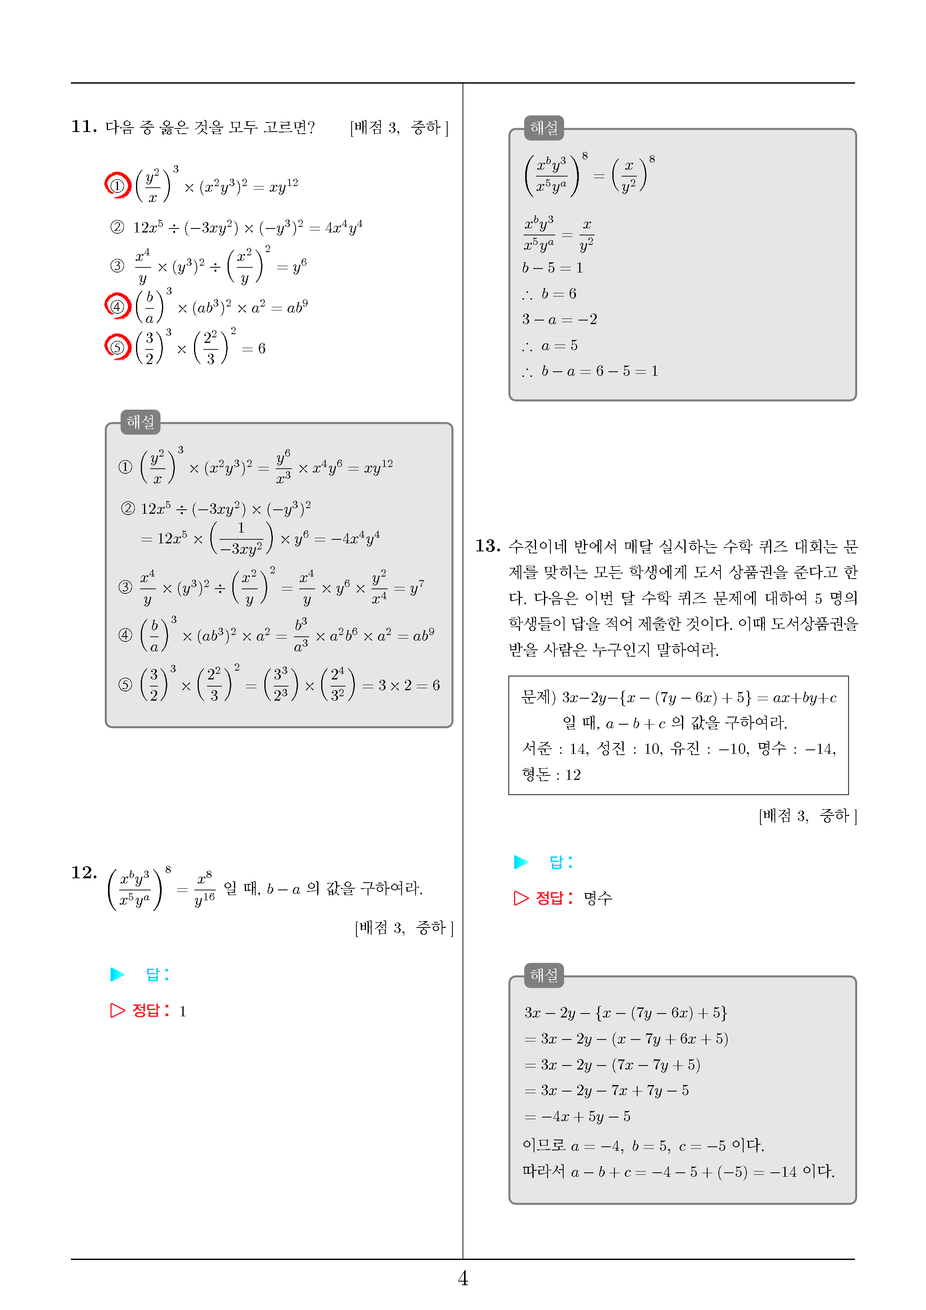 11. 다음 중 옳은 것을 모두 고르면? [배점 3, 중하]
① (y²/x)³ × (x²y³)² = xy¹²
② 12x⁵ ÷ (−3xy²) × (−y³)² = 4x⁴y⁴
③ x⁴/y × (y³)² ÷ (x²/y)² = y⁶
④ (b/a)³ × (ab³)² × a² = ab⁹
⑤ (3/2)³ × (2²/3)² = 6
해설
① (y²/x)³ × (x²y³)² = y⁶/x³ × x⁴y⁶ = xy¹²
② 12x⁵ ÷ (−3xy²) × (−y³)²
= 12x⁵ × (1/−3xy²) × y⁶ = −4x⁴y⁴
③ x⁴/y × (y³)² ÷ (x²/y)² = x⁴/y × y⁶ × y²/x⁴ = y⁷
④ (b/a)³ × (ab³)² × a² = b³/a³ × a²b⁶ × a² = ab⁹
⑤ (3/2)³ × (2²/3)² = (3³/2³) × (2⁴/3²) = 3 × 2 = 6
12. (xᵇy³/x⁵yᵃ)⁸ = x⁸/y¹⁶ 일 때, b − a 의 값을 구하여라.
[배점 3, 중하]
▶ 답 :
▷ 정답 : 1
해설
(xᵇy³/x⁵yᵃ)⁸ = (x/y²)⁸
xᵇy³/x⁵yᵃ = x/y²
b − 5 = 1
∴ b = 6
3 − a = −2
∴ a = 5
∴ b − a = 6 − 5 = 1
13. 수진이네 반에서 매달 실시하는 수학 퀴즈 대회는 문
제를 맞히는 모든 학생에게 도서 상품권을 준다고 한
다. 다음은 이번 달 수학 퀴즈 문제에 대하여 5 명의
학생들이 답을 적어 제출한 것이다. 이때 도서상품권을
받을 사람은 누구인지 말하여라.
문제) 3x−2y−{x − (7y − 6x) + 5} = ax+by+c
일 때, a − b + c 의 값을 구하여라.
서준 : 14, 성진 : 10, 유진 : −10, 명수 : −14,
형돈 : 12
[배점 3, 중하]
▶ 답 :
▷ 정답 : 명수
해설
3x − 2y − {x − (7y − 6x) + 5}
= 3x − 2y − (x − 7y + 6x + 5)
= 3x − 2y − (7x − 7y + 5)
= 3x − 2y − 7x + 7y − 5
= −4x + 5y − 5
이므로 a = −4, b = 5, c = −5 이다.
따라서 a − b + c = −4 − 5 + (−5) = −14 이다.
4